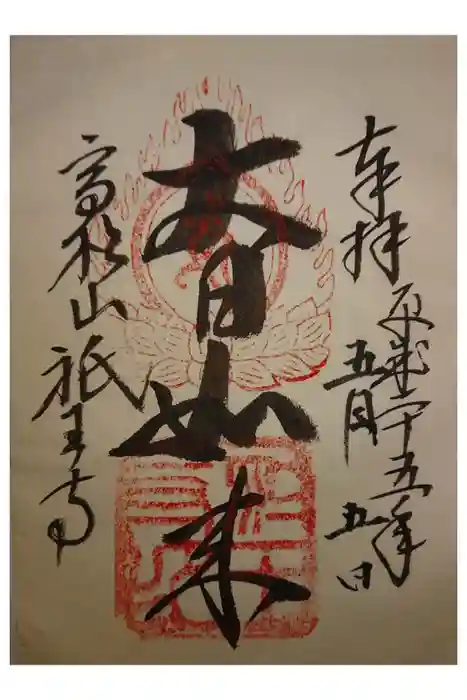 奉拝 平成二十五年
五月五日
大日如来
高松山 祇王寺